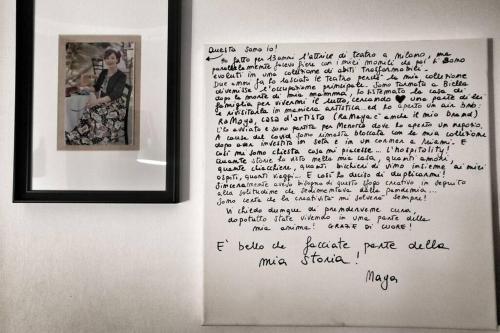 Questa sono io!
Ho fatto per 13 anni l'attrice di teatro a Milano, ma
parallelamente facevo fiere con i miei monili che poi si sono
evoluti in una collezione di abiti trasformabili.
Due anni fa ho lasciato il teatro perché la mia collezione
divenisse l'occupazione principale. Sono tornata a Biella
dopo la morte di mia mamma, ho sistemato la casa di
famiglia per vivermi il lutto, cercando ♥ una parte di lei
e rivisitarla in maniera artistica ed ho aperto un air bnb:
RaMaya, casa d'artista (RaMaya è anche il mio brand)
L'ho avviato e sono partita per Menorca dove ho aperto un negozio.
A causa del covid sono rimasta bloccata con la mia collezione
dopo aver investito in seta e in un corner a Miami. E
così mi sono chiesta cosa mi piacesse... l'hospitality!
Quante storie ho visto nella mia casa, quanti amori,
quante chiacchiere, quanti bicchieri di vino insieme ai miei
ospiti, quanti viaggi... E così ho deciso di duplicarmi!
Sinceramente avevo bisogno di questo sfogo creativo in seguito
alla solitudine che sedimentava dalla pandemia...
Sono certa che la creatività mi salverà sempre!
Vi chiedo dunque di prendervene cura,
dopotutto state vivendo in una parte della
mia anima! GRAZIE DI CUORE!
E' bello che facciate parte della
mia storia!
Maya